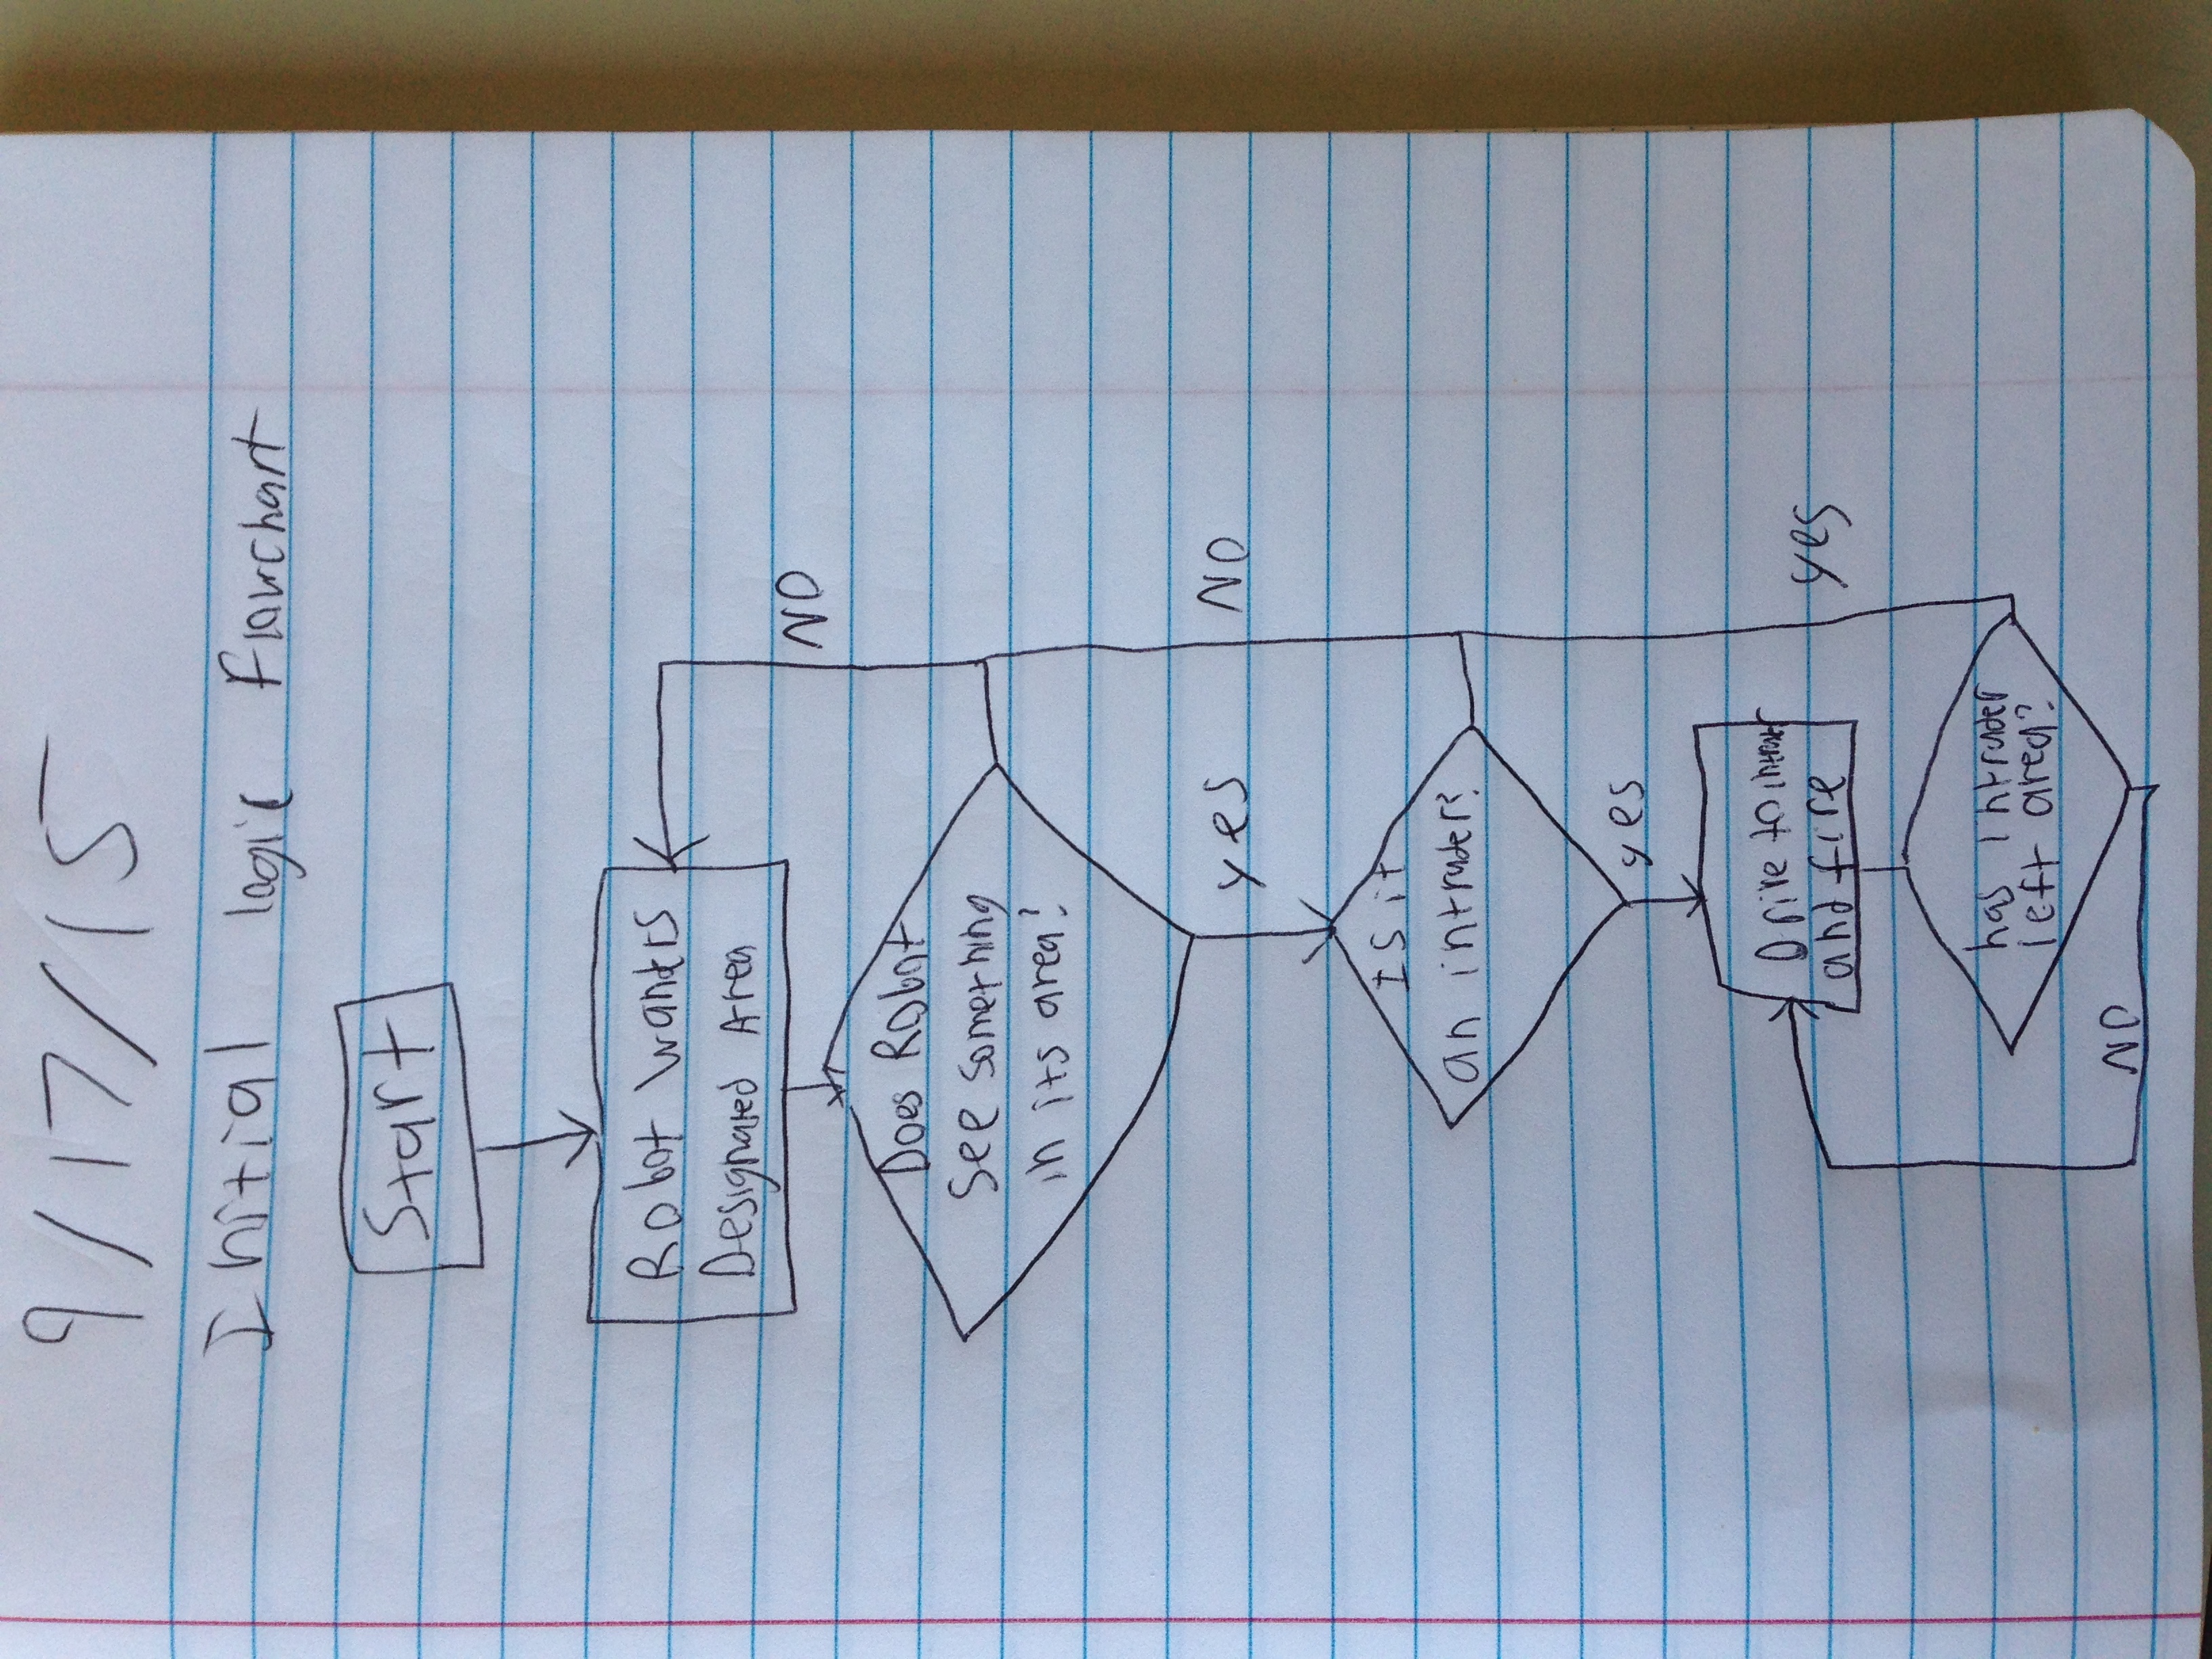 9/17/15
Initial logic Flowchart
Start
Robot Wanders
Designated Area
NO
Does Robot
See something
in its area?
yes
NO
Is it
an intruder?
yes
Drive to intruder
and fire
yes
has intruder
left area?
NO